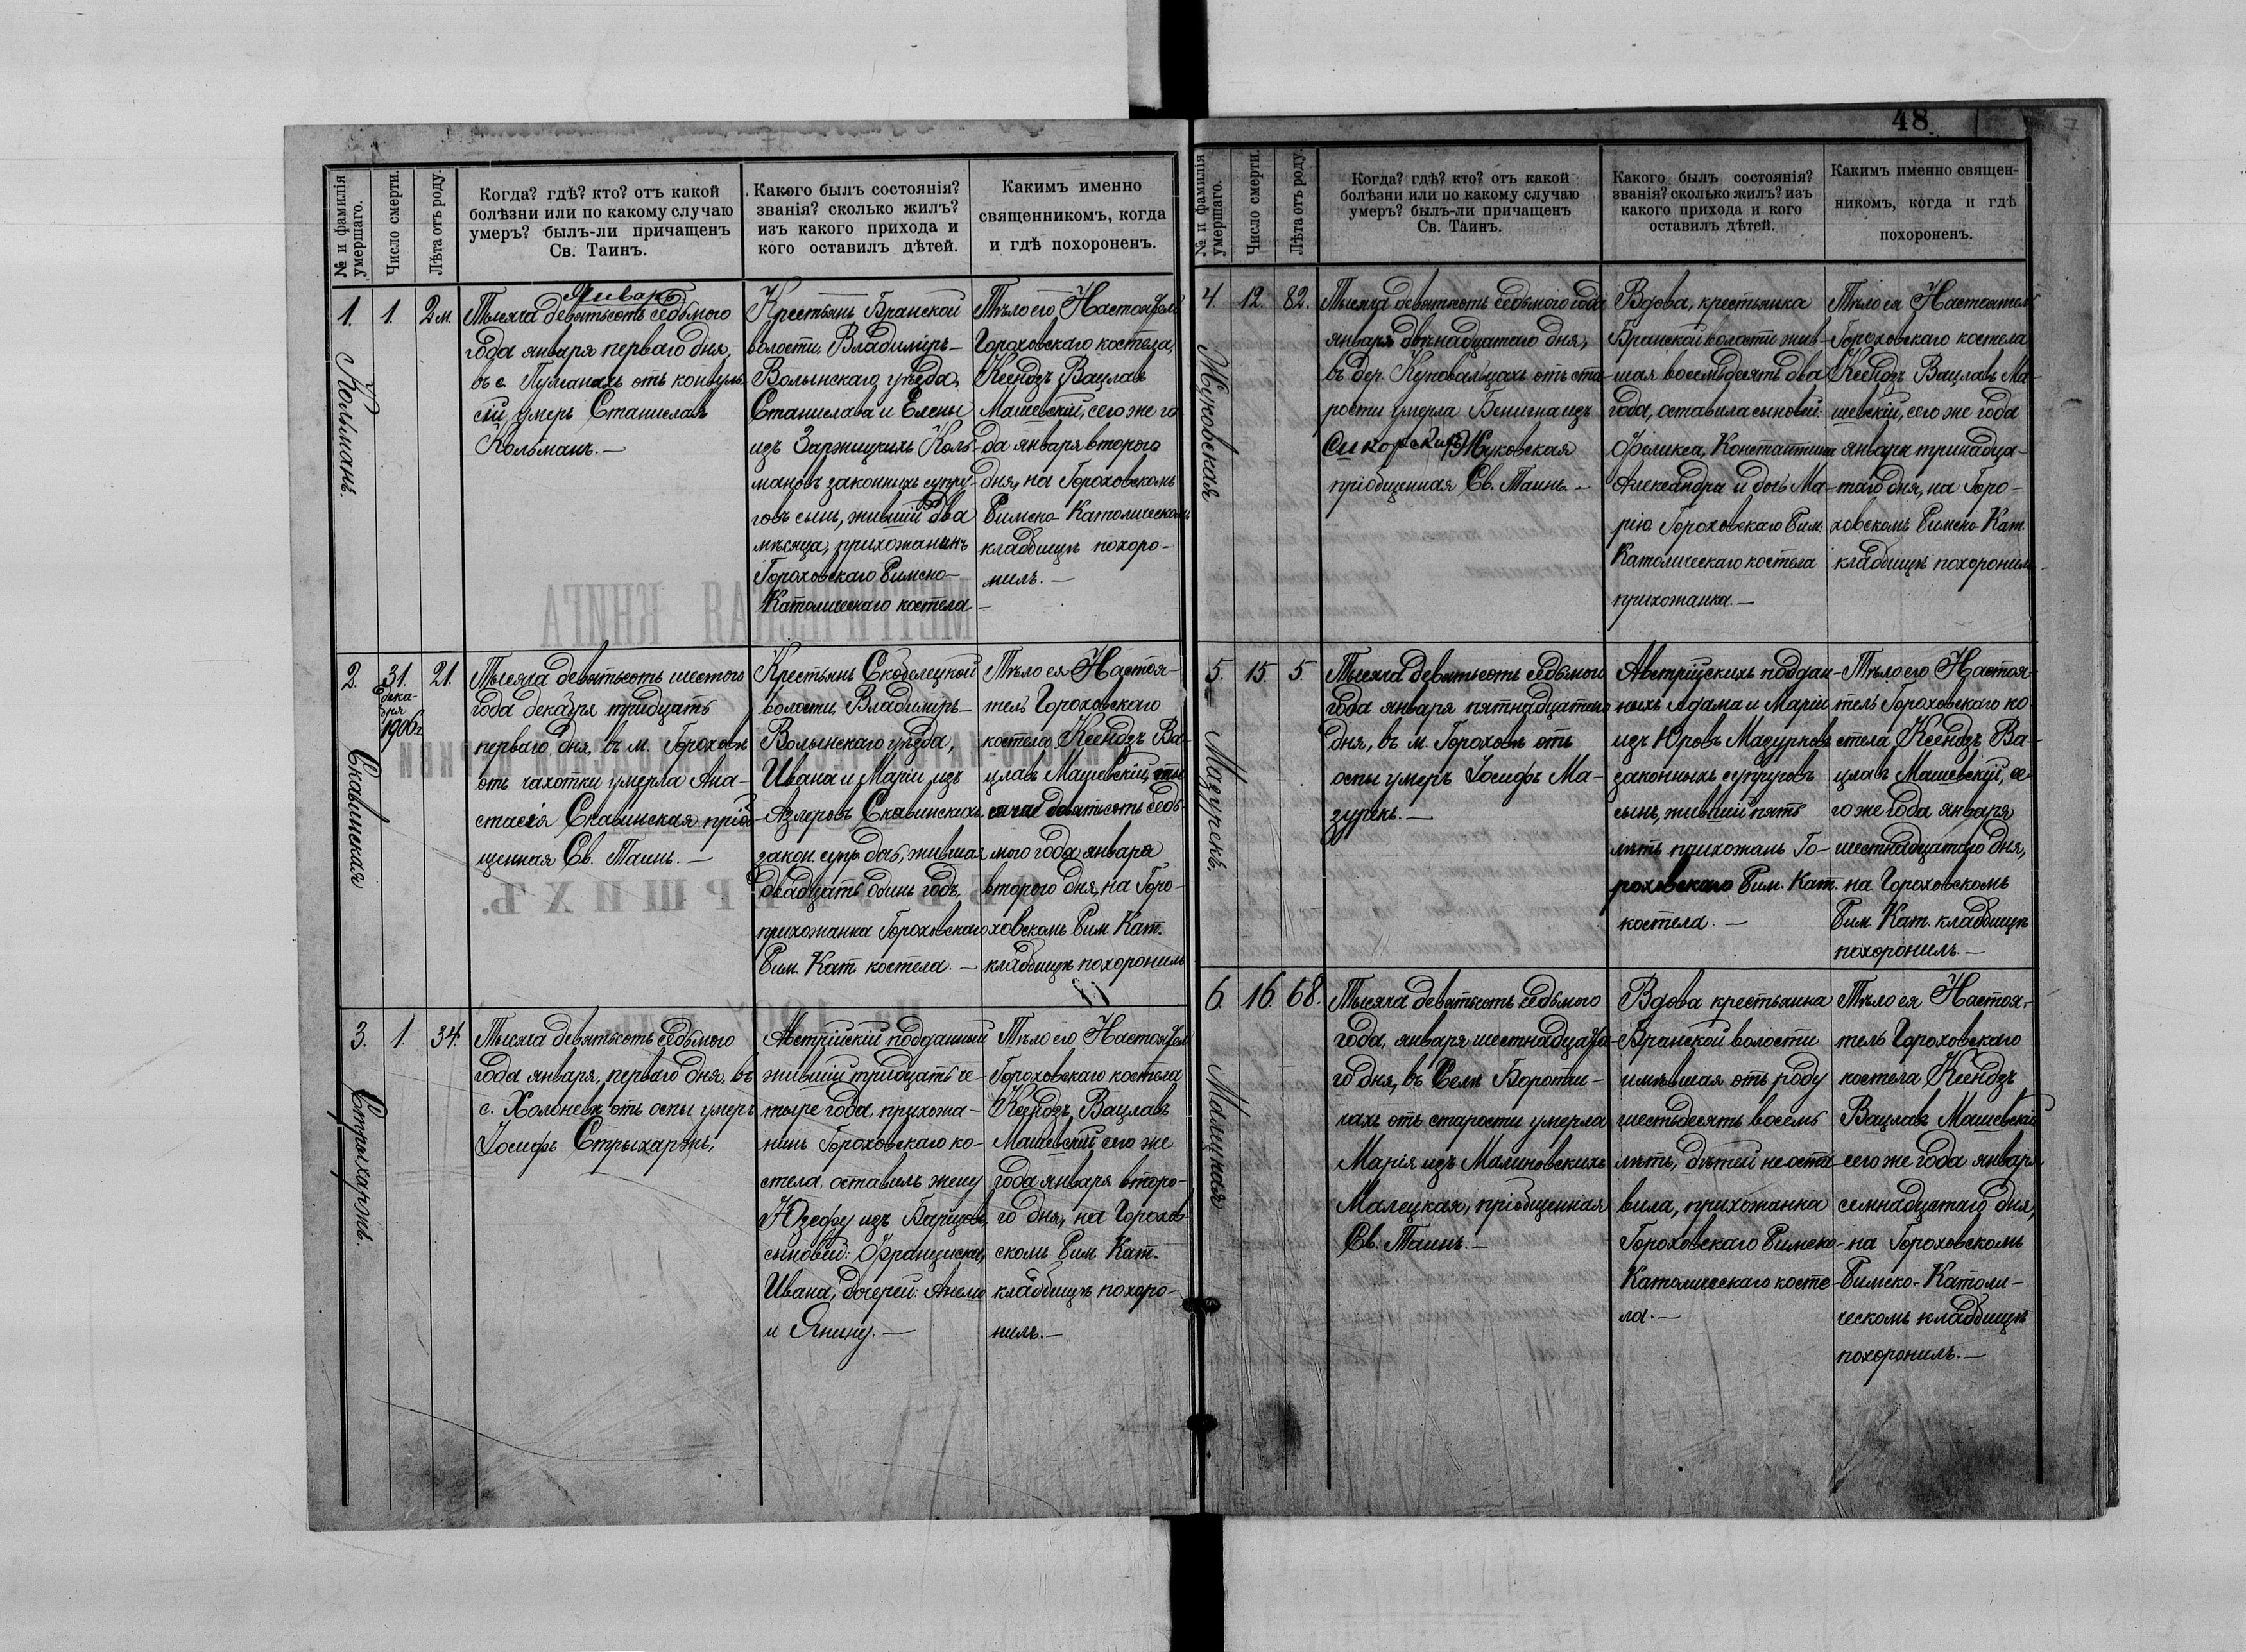 48
№ и фамилія умершаго.
Число смерти.
Лѣта отъ роду.
Когда? гдѣ? кто? отъ какой
болѣзни или по какому случаю
умеръ? былъ-ли причащенъ
Св. Таинъ.
Какого былъ состоянія?
званія? сколько жилъ?
изъ какого прихода и
кого оставилъ дѣтей.
Какимъ именно
священникомъ, когда
и гдѣ похороненъ.
Январь
1.
Кольманъ.
1.
2 м.
Тысяча девятьсотъ седьмого
года января перваго дня,
въ с. Пуманахъ отъ конвуль
сій умеръ Станиславъ
Кольманъ.—
Крестьянъ Бранской
волости, Владиміръ-
Волынскаго уѣзда,
Станислава и Елены
изъ Заржицкихъ Коль-
мановъ законныхъ супру-
говъ сынъ, жившій два
мѣсяца, прихожанинъ
Гороховскаго Римско-
Католическаго костела—
Тѣло его Настоятель
Гороховскаго костела,
Ксендзъ Вацлавъ
Машевскій, сего же го
да января второго
дня, на Гороховскомъ
Римско-Католическомъ
кладбищѣ похоро-
нилъ.—
2.
Скавинская
31.
дека-
бря
1906 г.
21.
Тысяча девятьсотъ шестого
года декабря тридцать
перваго дня въ м. Гороховѣ
отъ чахотки умерла Ана-
стасія Скавинская пріоб
щенная Св. Таинъ.—
Крестьянъ Скобелецкой
волости, Владиміръ-
Волынскаго уѣзда,
Ивана и Маріи изъ
Азлеровъ Скавинскихъ
закон. супр. дочь, жившая
двадцать одинъ годъ,
прихожанка Гороховскаго
Рим. Кат. костела.—
Тѣло ея Настоя-
тель Гороховскаго
костела Ксендзъ Ва-
цлавъ Машевскій, ты
сяча девятьсотъ седь
мого года января
второго дня, на Горо-
ховскомъ Рим. Кат.
кладбищѣ похоронилъ
3.
Стрыхаронъ.
1.
34.
Тысяча девятьсотъ седьмого
года января, перваго дня, въ
с. Холоневѣ отъ оспы умеръ
Іосифъ Стрыхаронъ,
Австрійскій подданный
жившій тридцать че-
тыре года прихожа-
нинъ Гороховскаго ко-
стела оставилъ жену
Юзефу изъ
сыновей: Франциска,
Ивана, дочерей: Анелю
и Янину.—
Тѣло его Настоятель
Гороховскаго костела
Ксендзъ Вацлавъ
Машевскій сего же
года января второ-
го дня, на Горохов-
скомъ Рим. Кат.
кладбищѣ похоро-
нилъ.—
№ и фамилія умершаго.
Число смерти.
Лѣта отъ роду.
Когда? гдѣ? кто? отъ какой
болѣзни или по какому случаю
умеръ? былъ-ли причащенъ
Св. Таинъ.
Какого былъ состоянія?
званія? сколько жилъ? изъ
какого прихода и кого
оставилъ дѣтей.
Какимъ именно священ-
никомъ, когда и гдѣ
похороненъ.
4.
Жуковская
12.
82.
Тысяча девятьсотъ седьмого года
января двѣнадцатаго дня,
въ дер. Куковальцахъ отъ ста-
рости умерла Бенигна изъ
Сикорскихъ Жуковская
пріобщенная Св. Таинъ.—
Вдова, крестьянка
Бранской волости жив-
шая восемьдесять два
года, оставила сыновей:
Феликса, Константина
Александра и дочь Ма-
рію Гороховскаго Рим.
Католическаго костела
прихожанка.—
Тѣло ея Настоятель
Гороховскаго костела
Ксендзъ Вацлавъ Ма-
шевскій, сего же года
января тринадца-
таго дня, на Горо-
ховскомъ Римско-Кат.
кладбищѣ похоронилъ.
5.
Мазурекъ.
15.
5.
Тысяча девятьсотъ седьмого
года января пятнадцатаго
дня, въ м. Гороховѣ отъ
оспы умеръ Іосифъ Ма-
зурекъ.—
Австрійскихъ поддан-
ныхъ Адама и Маріи
изъ Юровъ Мазурковъ
законныхъ супруговъ
сынъ, жившій пять
лѣтъ прихожанъ Го-
роховскаго Рим. Кат.
костела.—
Тѣло его Настоя-
тель Гороховскаго ко-
стела Ксендзъ Ва-
цлавъ Машевскій, се-
го же года января
шестнадцатаго дня,
на Гороховскомъ
Рим. Кат. кладбищѣ
похоронилъ.—
6.
Малецкая
16.
68.
Тысяча девятьсотъ седьмого
года, января шестнадцата-
го дня, въ Селѣ Боротчи-
чахъ отъ старости умерла
Марія изъ Малиновскихъ
Малецкая, пріобщенная
Св. Таинъ.—
Вдова крестьянка
Бранской волости
имѣвшая отъ роду
шестьдесять восемь
лѣтъ, дѣтей не оста-
вила, прихожанка
Гороховскаго Римско-
Католическаго косте-
ла.—
Тѣло ея Настоя-
тель Гороховскаго
костела Ксендзъ
Вацлавъ Машевскій
сего же года января
семнадцатаго дня,
на Гороховскомъ
Римско-Католи-
ческомъ кладбищѣ
похоронилъ.—